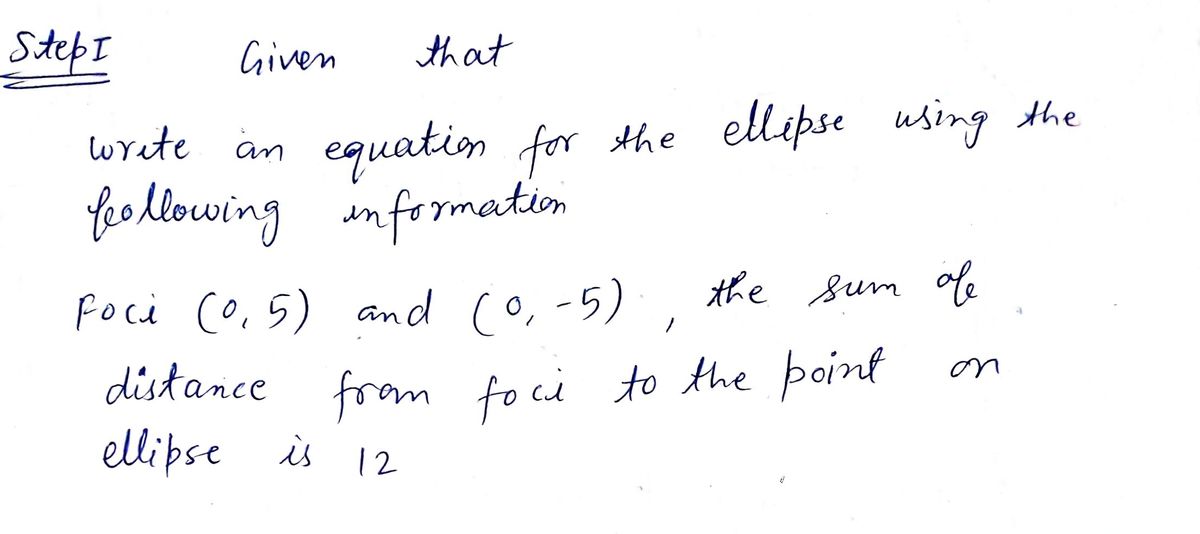 Step I Given that
write an equation for the ellipse using the
following information
Foci (0, 5) and (0, -5), the sum of
distance from foci to the point on
ellipse is 12